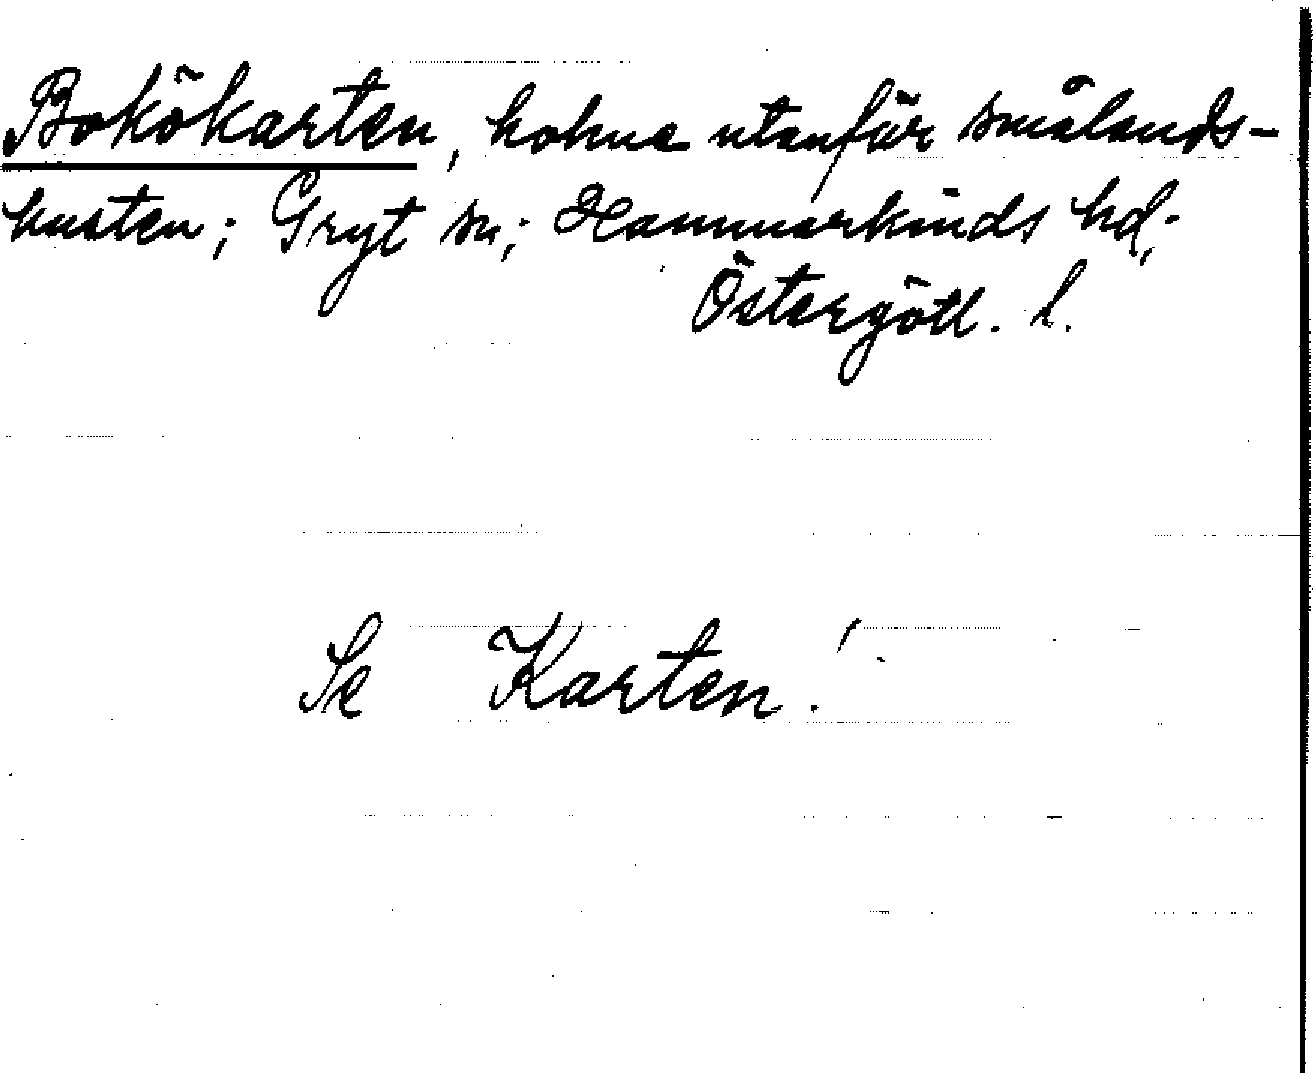 Bokökarten, holme utanför smålands-
kusten; Gryt sn; Hammarkinds hd;
Östergötl. l.
Se Karten!